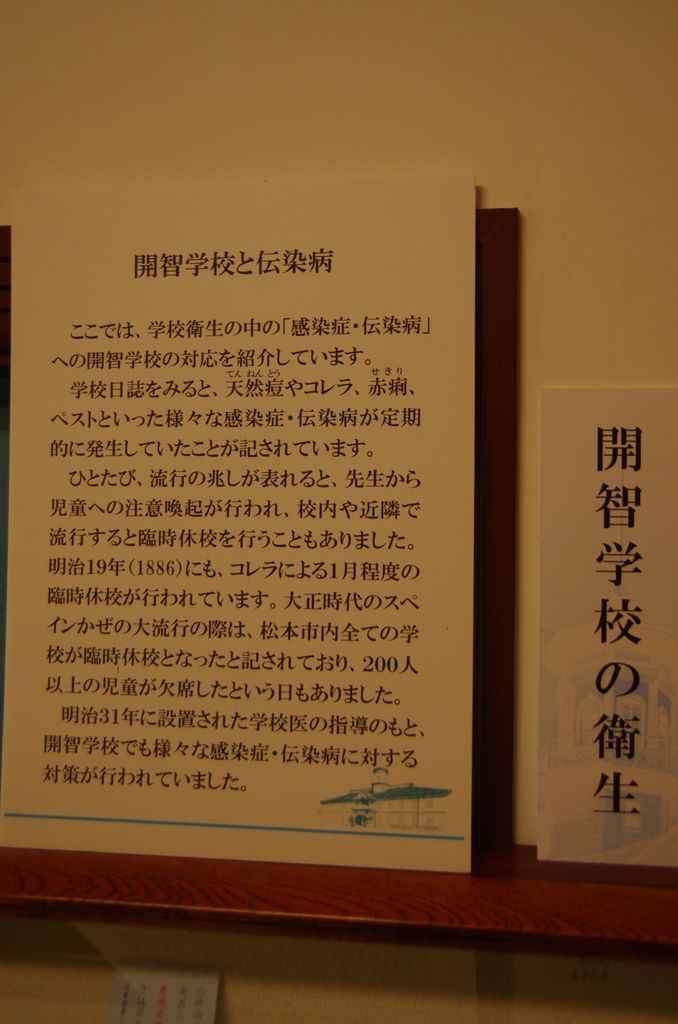 開智学校と伝染病
ここでは、学校衛生の中の「感染症・伝染病」
への開智学校の対応を紹介しています。
てんねんとう せきり
学校日誌をみると、天然痘やコレラ、赤痢、
ペストといった様々な感染症・伝染病が定期
的に発生していたことが記されています。
ひとたび、流行の兆しが表れると、先生から
児童への注意喚起が行われ、校内や近隣で
流行すると臨時休校を行うこともありました。
明治19年(1886)にも、コレラによる1月程度の
臨時休校が行われています。大正時代のスペ
インかぜの大流行の際は、松本市内全ての学
校が臨時休校となったと記されており、200人
以上の児童が欠席したという日もありました。
明治31年に設置された学校医の指導のもと、
開智学校でも様々な感染症・伝染病に対する
対策が行われていました。
開智学校の衛生